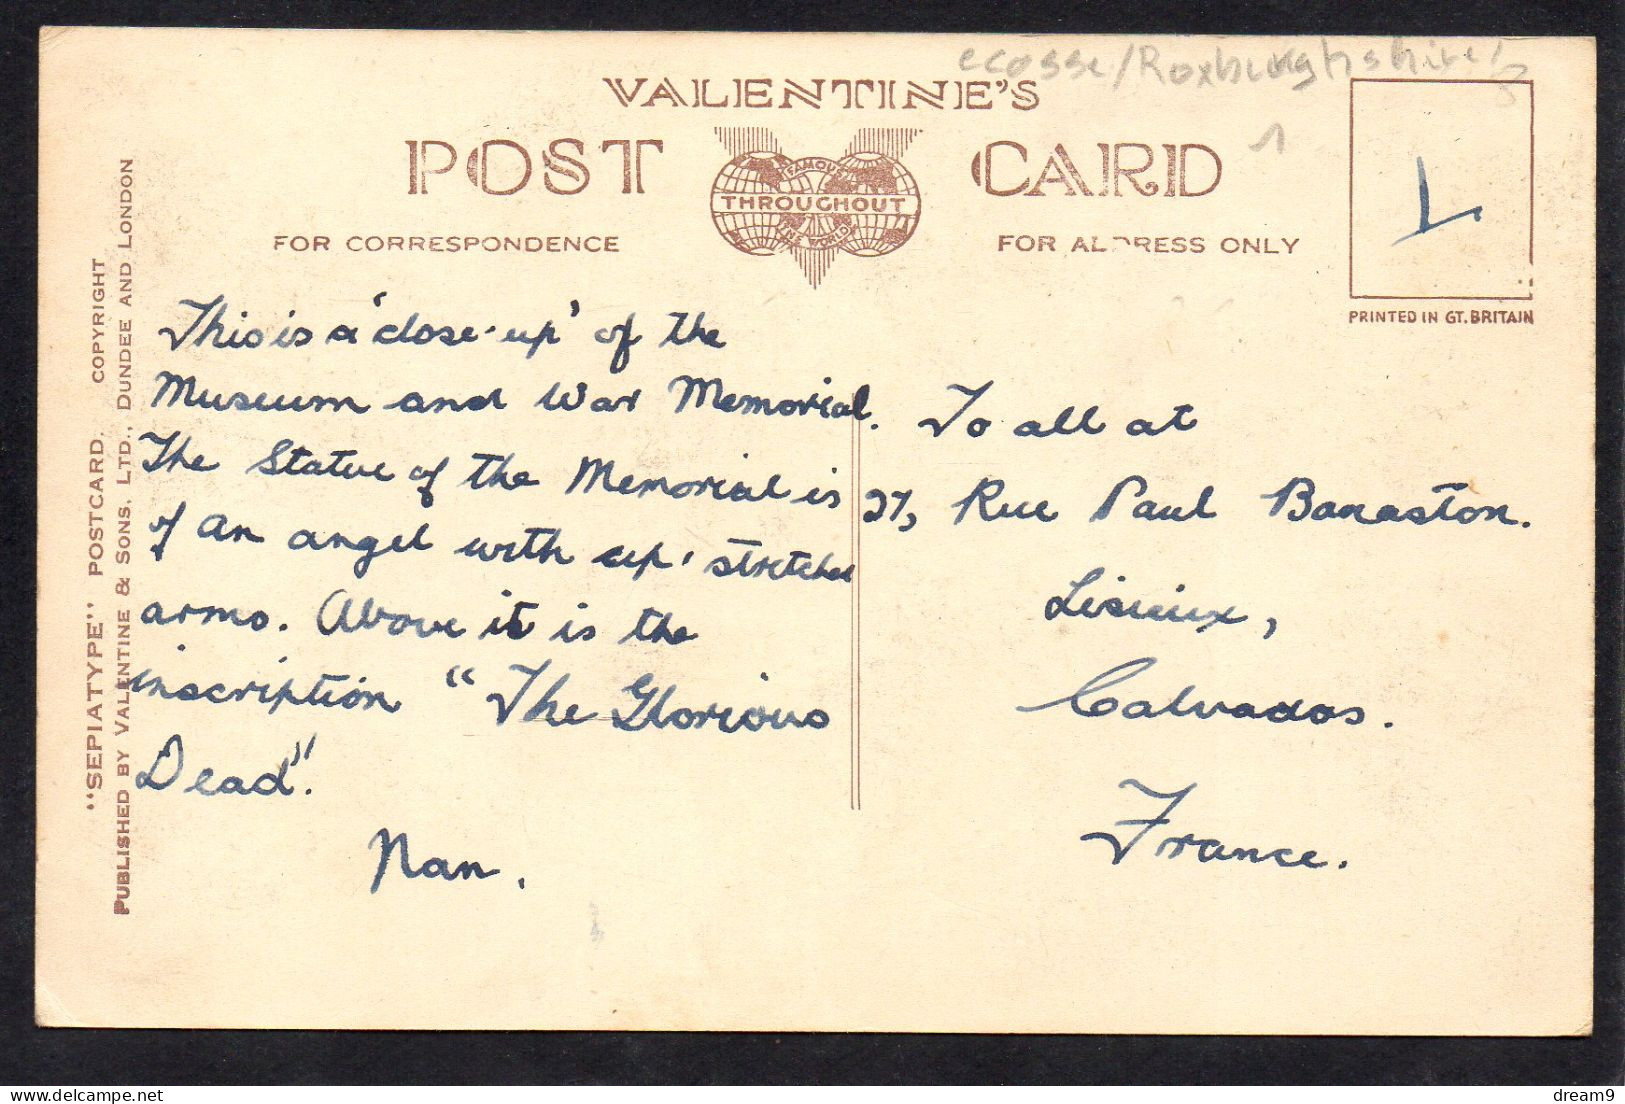 ecosse/Roxburghshire/
VALENTINE'S
POST CARD
FAMOUS
THROUGHOUT
THE WORLD
FOR CORRESPONDENCE
FOR ADDRESS ONLY
1
L
PRINTED IN GT. BRITAIN
"SEPIATYPE" POSTCARD. COPYRIGHT
PUBLISHED BY VALENTINE & SONS, LTD., DUNDEE AND LONDON
This is a 'close-up' of the
Museum and War Memorial.
The Statue of the Memorial is
of an angel with up-stretched
arms. Above it is the
inscription "The Glorious
Dead".
Nan.
To all at
27, Rue Paul Banaston.
Lisieux,
Calvados.
France.
© delcampe.net
dream9